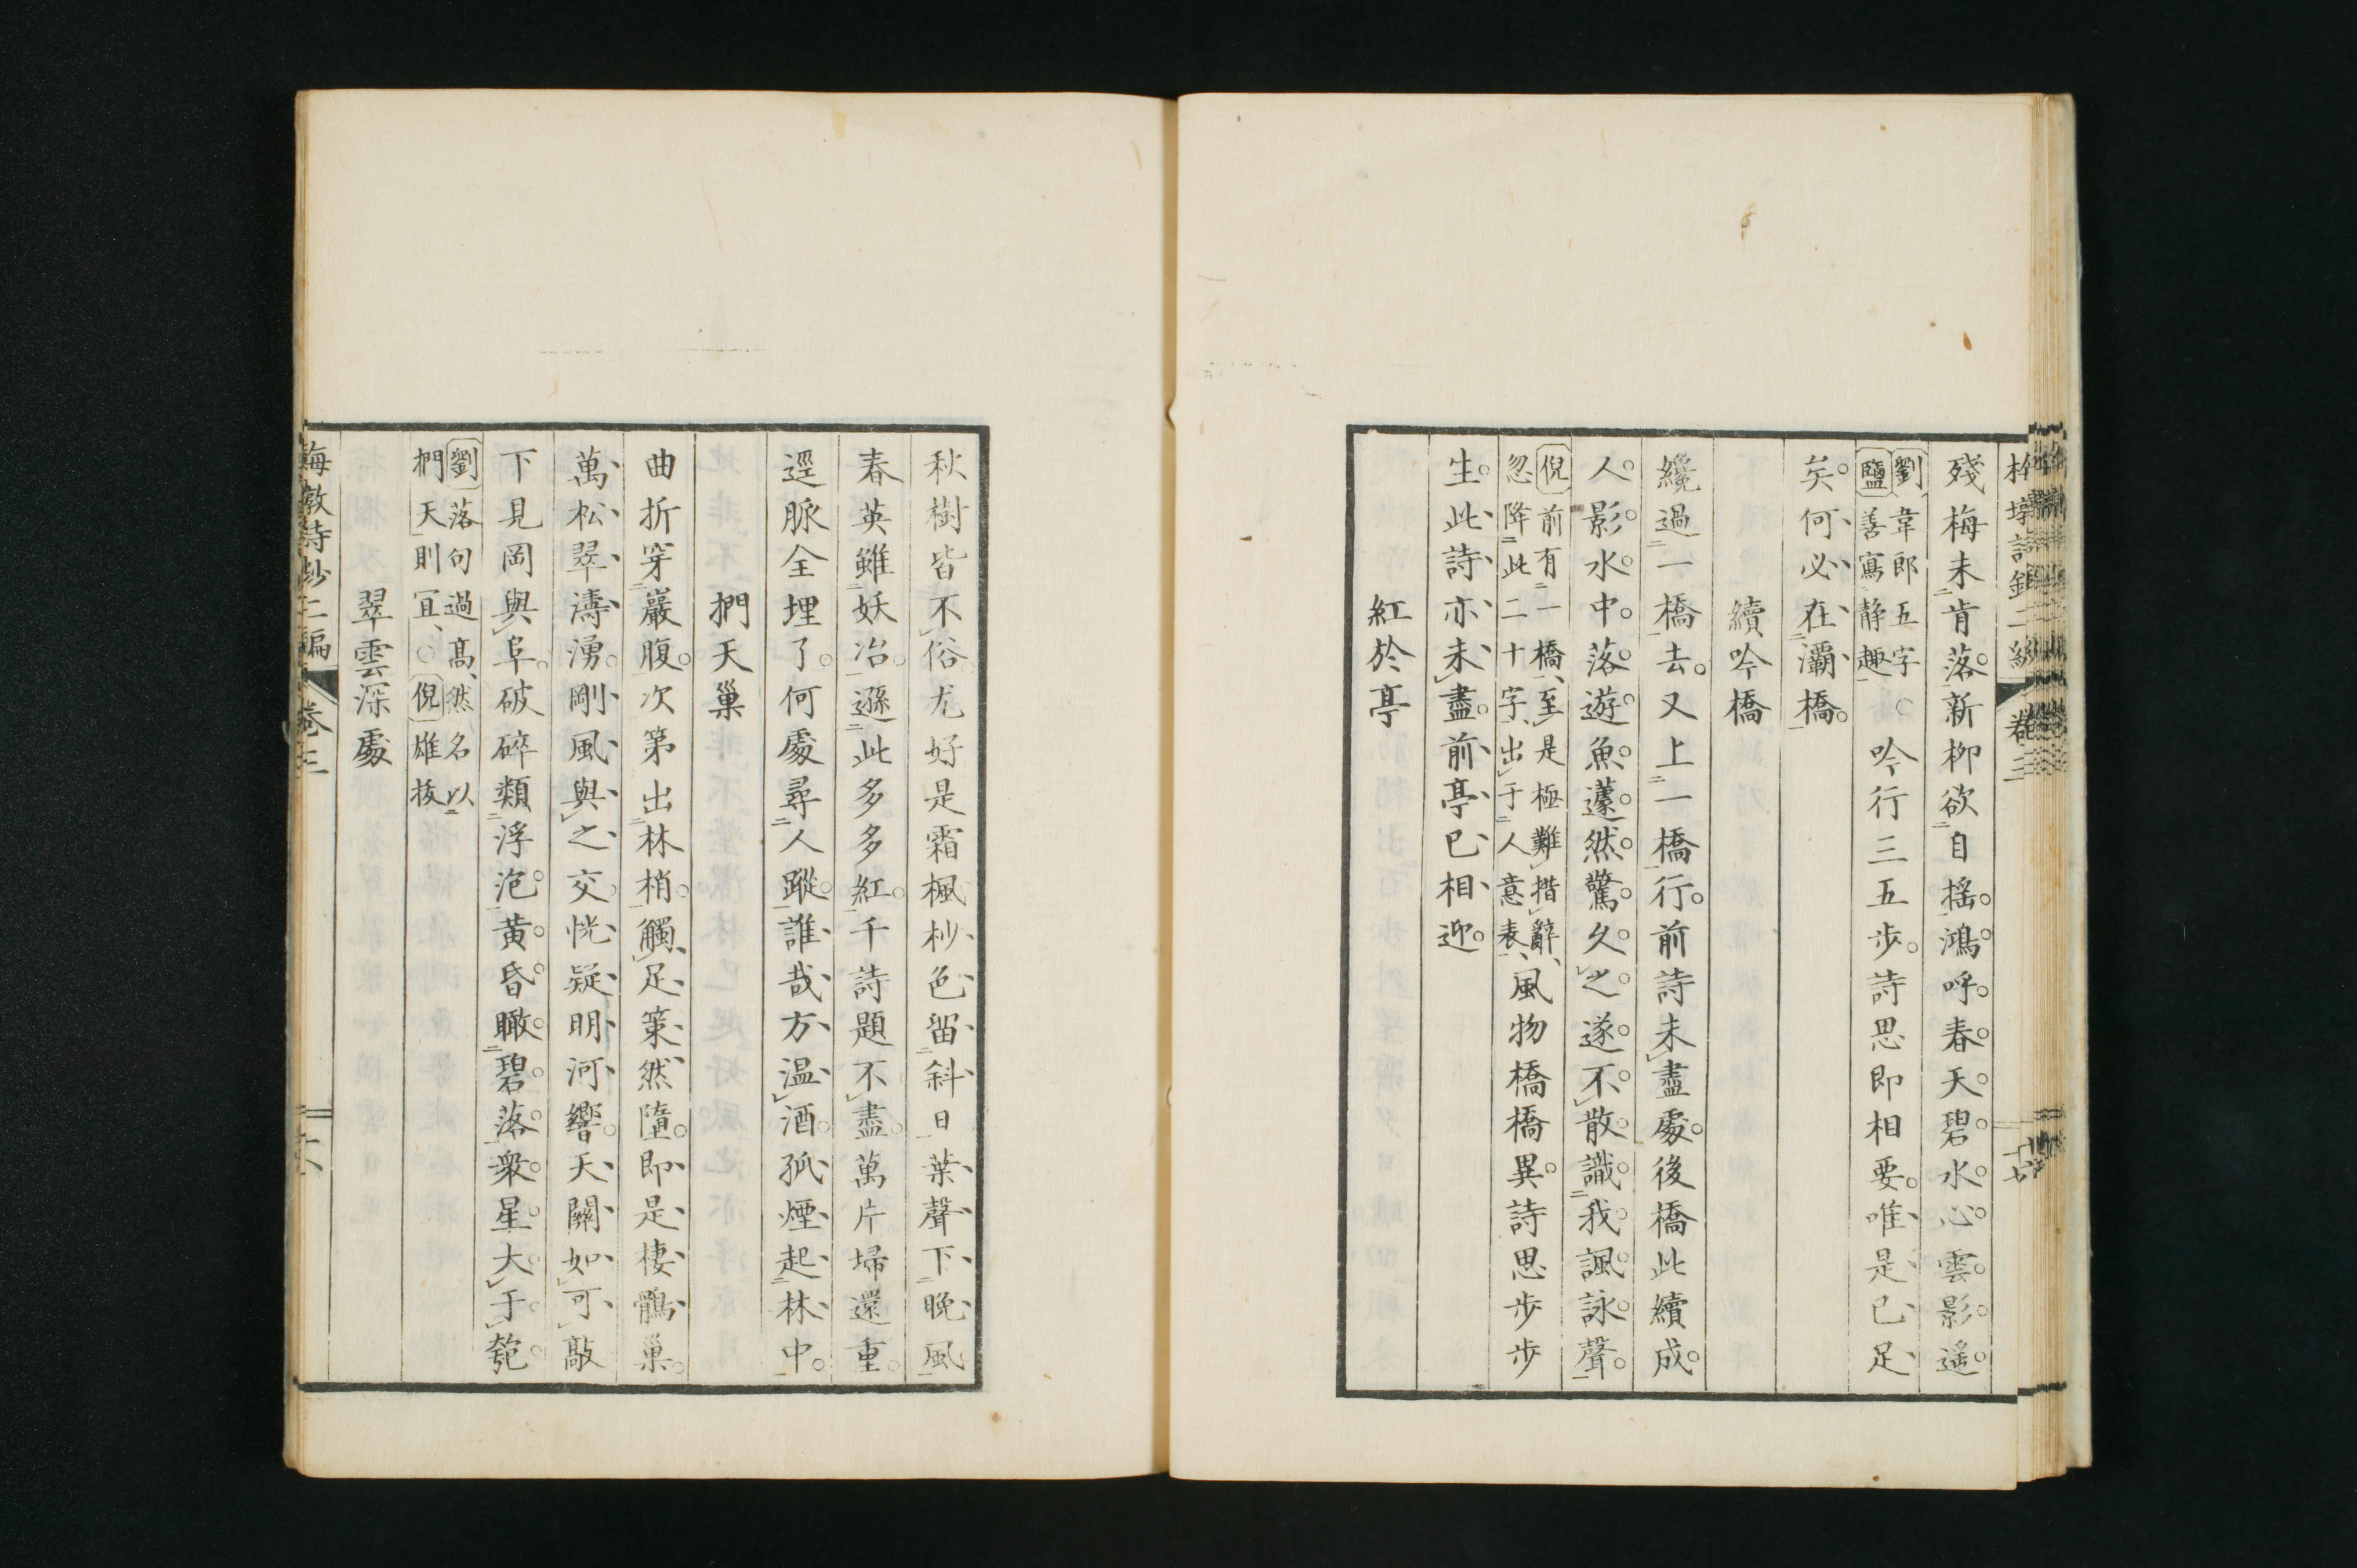 殘梅未肯落新柳欲自搖鴻呼春天碧水心雲影遙
劉韋郎五字○
鹽善寫静趣
吟行三五步詩思即相要唯是已足
矣何必在灞橋
續吟橋
纔過一橋去又上一橋行前詩未盡處後橋此續成
人影水中落遊魚蘧然驚久之遂不散識我諷詠聲
倪前有一橋至是極難措辭
忽降此二十字出于人意表
風物橋橋異詩思步步
生此詩亦未盡前亭已相迎
紅於亭
卷三
十七
秋樹皆不俗尤好是霜楓杪色留斜日葉聲下晚風
春英雖妖冶遜此多多紅千詩題不盡萬片埽還重
逕脈全埋了何處尋人蹤誰哉方温酒孤煙起林中
捫天巢
曲折穿巖腹次第出林梢觸足策然墮即是棲鶻巢
萬松翠濤湧剛風與之交恍疑明河響天關如可敲
下見岡與阜破碎類浮泡黃昏瞰碧落衆星大于匏
劉落句過高然名以
捫天則宜○倪雄拔
翠雲深處
梅墩詩鈔二編 卷三